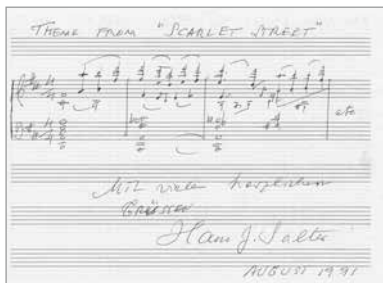 THEME FROM "SCARLET STREET"
etc
Mit vielen herzlichen
GRÜSSEN
Hans J. Salter
AUGUST 1991